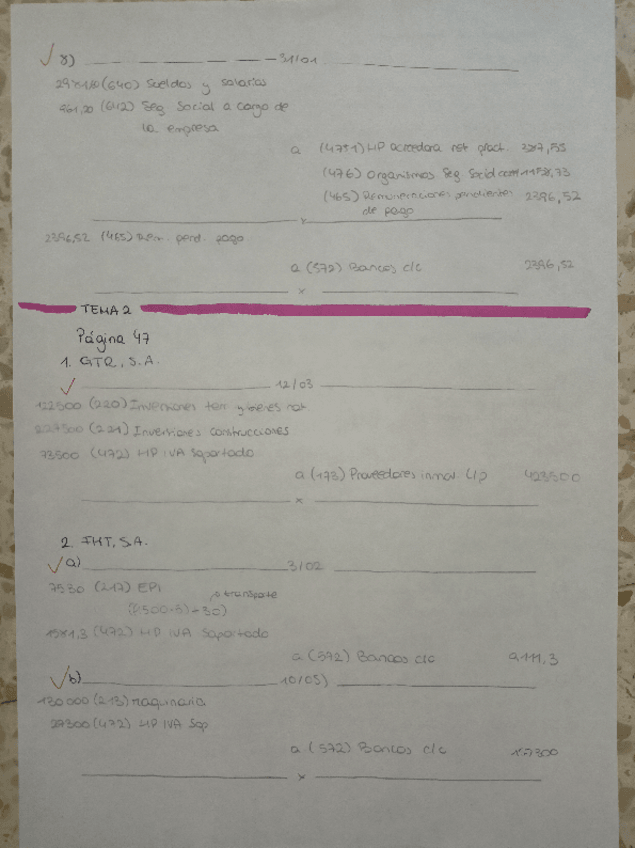 8) 31/01
(640) Sueldos y salarios
(642) Seg Social a cargo de
la empresa
a (4751) HP acreedora ret pract.
(476) Organismos Seg Social
(465) Remuneraciones pendientes 2396,52
de pago
2396,52 (465) Rem. pend. pago
a (572) Bancos c/c 2396,52
x
TEMA 2
Página 47
1. GTR, S.A.
12/03
122500 (220) Inversiones terr y bienes nat
227500 (221) Inversiones construcciones
73500 (472) HP IVA Soportado
a (173) Proveedores inmov. L/p 423500
x
2. , S.A.
a) 3/02
7530 (217) EPI
transporte
(1500·5)+30)
(472) HP IVA Soportado
a (572) Bancos c/c 9.111,3
b) 10/05)
130000 (213) Maquinaria
27300 (472) HP IVA Sop
a (572) Bancos c/c
x